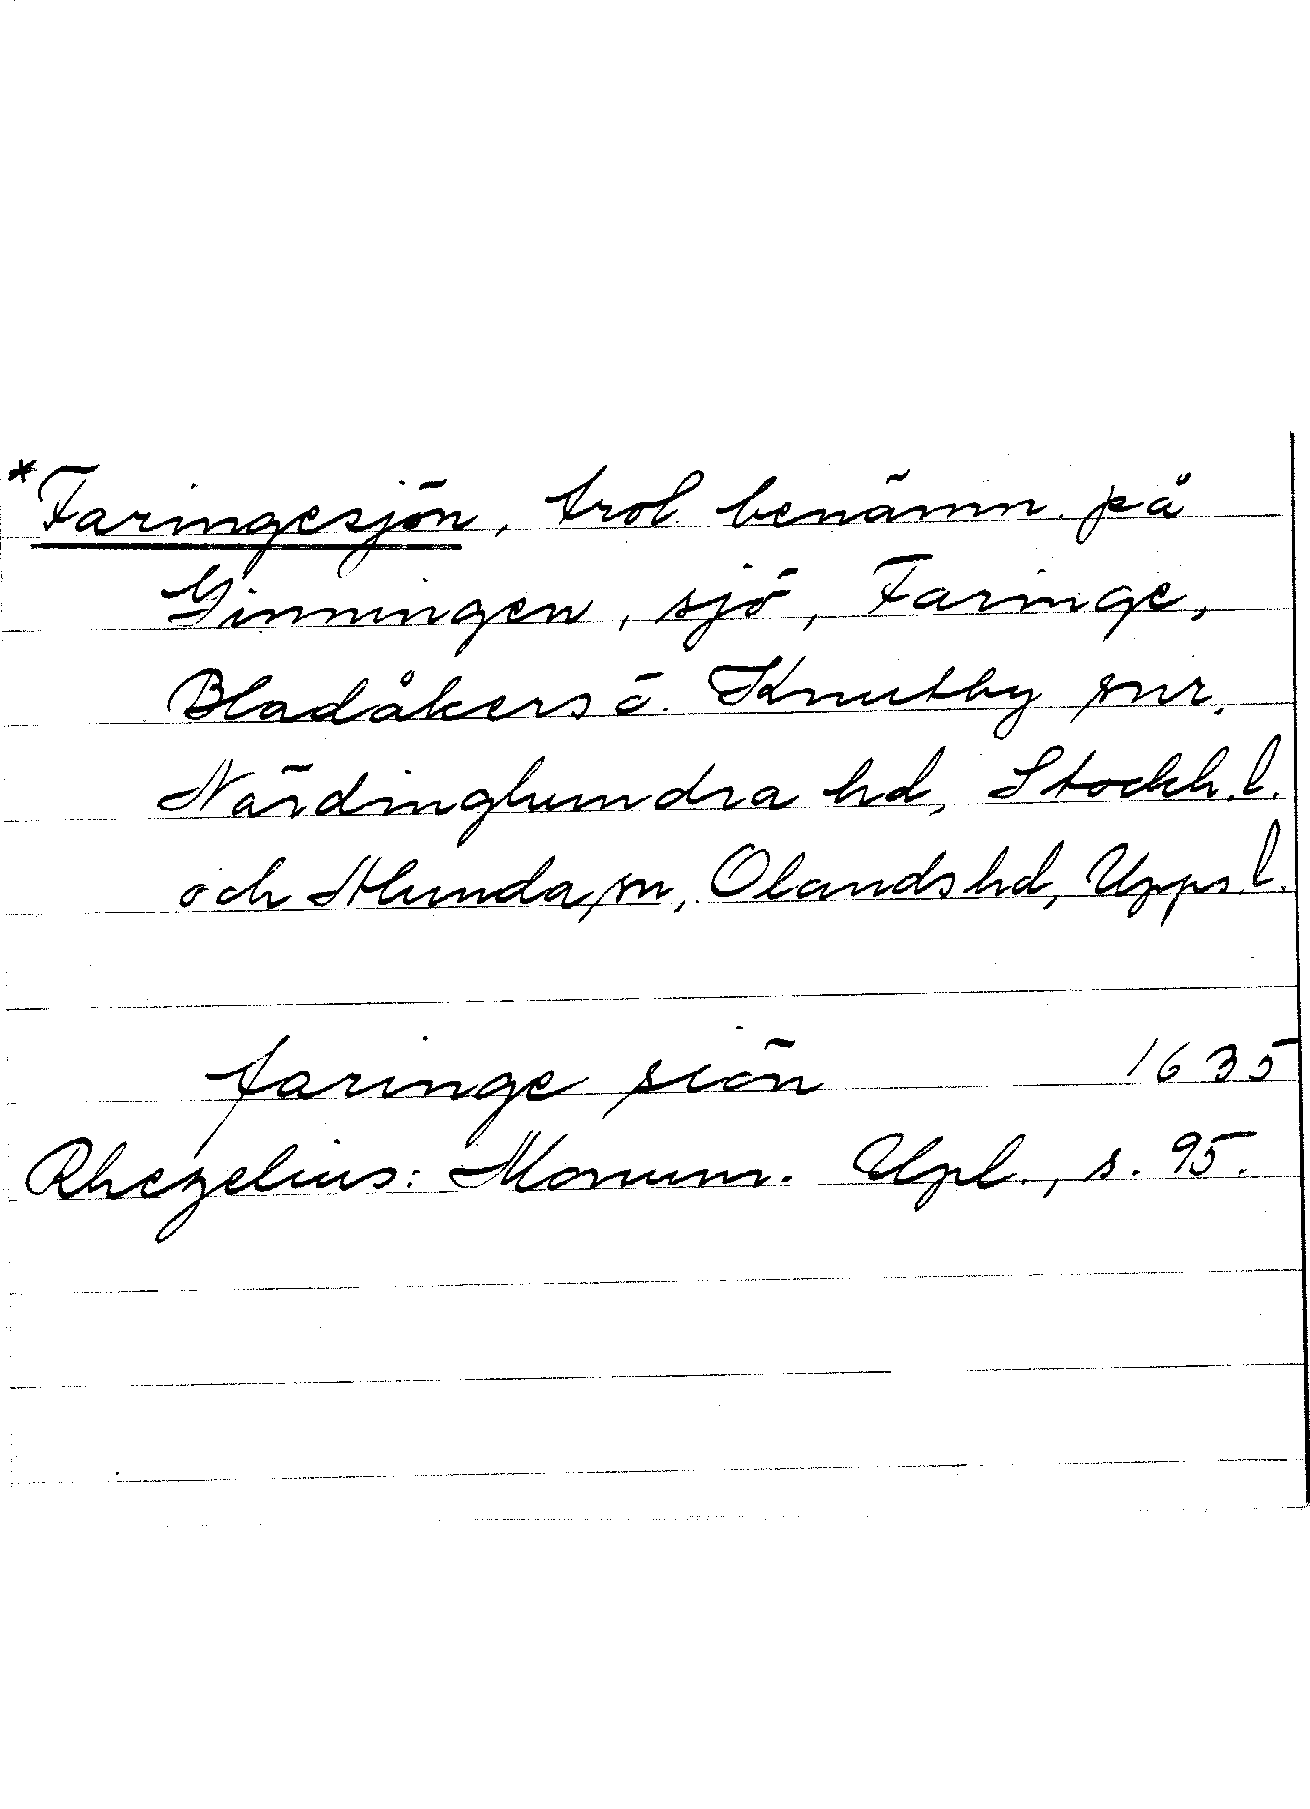 *Faringesjön, trol. benämn. på
Ginningen, sjö, Faringe,
Bladåkers o. Knutby snr,
Närdinghundra hd, Stockh. l.
och Alunda sn, Olands hd, Upps. l.
faringe siön 1635
Rhezelius: Monum. Upl., s. 95.